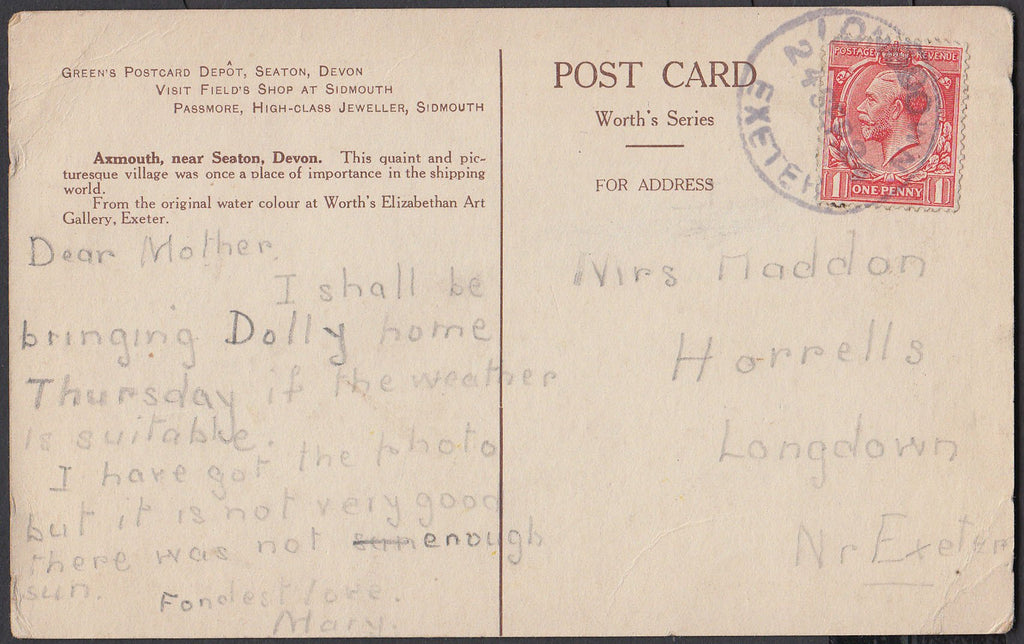 GREEN'S POSTCARD DEPÔT, SEATON, DEVON
VISIT FIELD'S SHOP AT SIDMOUTH
PASSMORE, HIGH-CLASS JEWELLER, SIDMOUTH
Axmouth, near Seaton, Devon. This quaint and pic-
turesque village was once a place of importance in the shipping
world.
From the original water colour at Worth's Elizabethan Art
Gallery, Exeter.
Dear Mother.
I shall be
bringing Dolly home
Thursday if the weather
is suitable.
I have got the photo
but it is not very good
there was not sun enough
sun.
Fondest love.
Mary.
POST CARD
Worth's Series
FOR ADDRESS
POSTAGE REVENUE
1 ONE PENNY 1
LONGDOWN
EXETER
Mrs Haddon
Horrells
Longdown
Nr Exeter